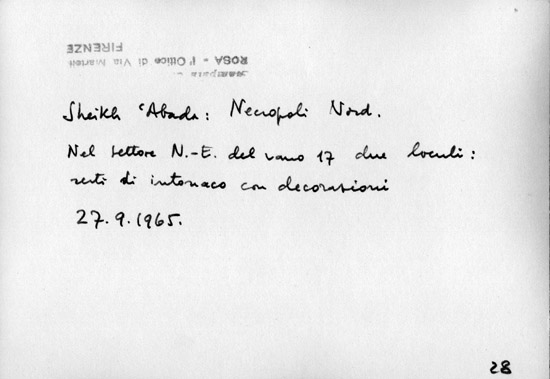 Stampata da
ROSA - l'Ottico di Via Martelli
FIRENZE
Sheikh 'Abada: Necropoli Nord.
Nel settore N.-E. del vano 17 due loculi:
resti di intonaco con decorazioni
27.9.1965.
28